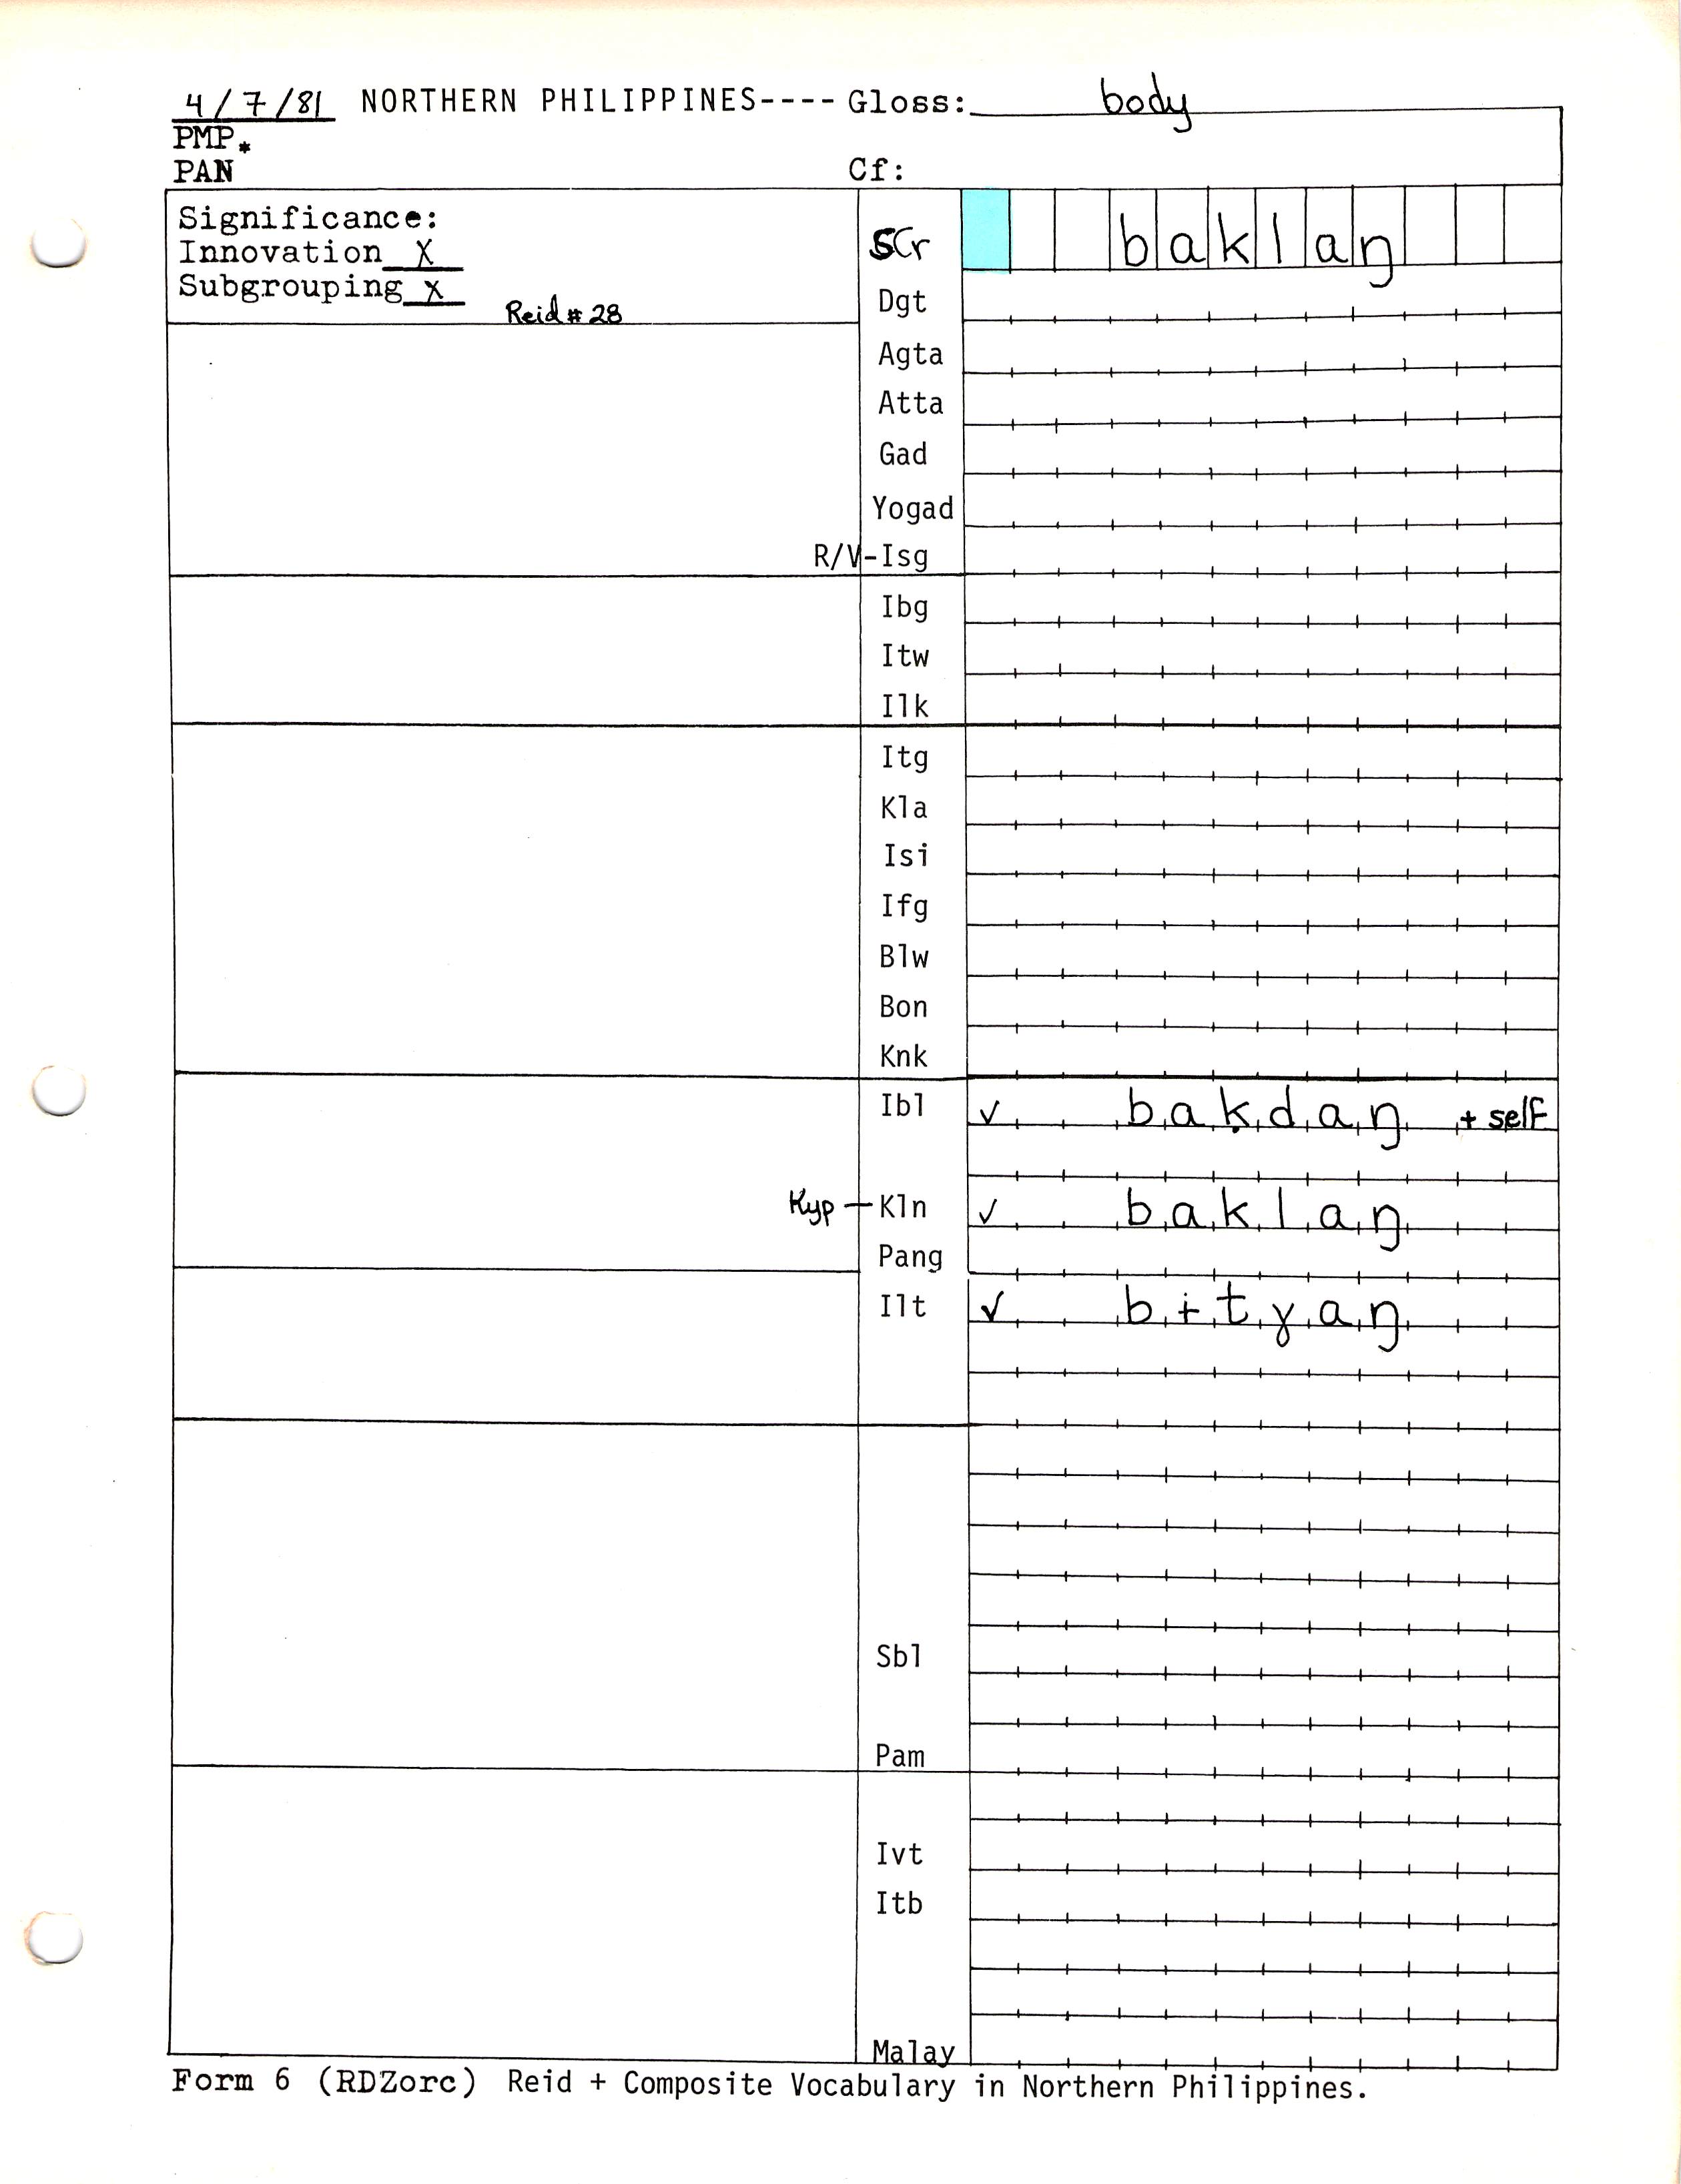 4/7/81 NORTHERN PHILIPPINES---- Gloss: body
PMP*
PAN Cf:
Significance:
Innovation X
Subgrouping X
Reid # 28
SCr baklaŋ
Dgt
Agta
Atta
Gad
Yogad
R/V-Isg
Ibg
Itw
Ilk
Itg
Kla
Isi
Ifg
Blw
Bon
Knk
Ibl ✓ bakdaŋ + self
Kyp - Kln ✓ baklaŋ
Pang
Ilt ✓ bɨtɣaŋ
Sbl
Pam
Ivt
Itb
Malay
Form 6 (RDZorc) Reid + Composite Vocabulary in Northern Philippines.